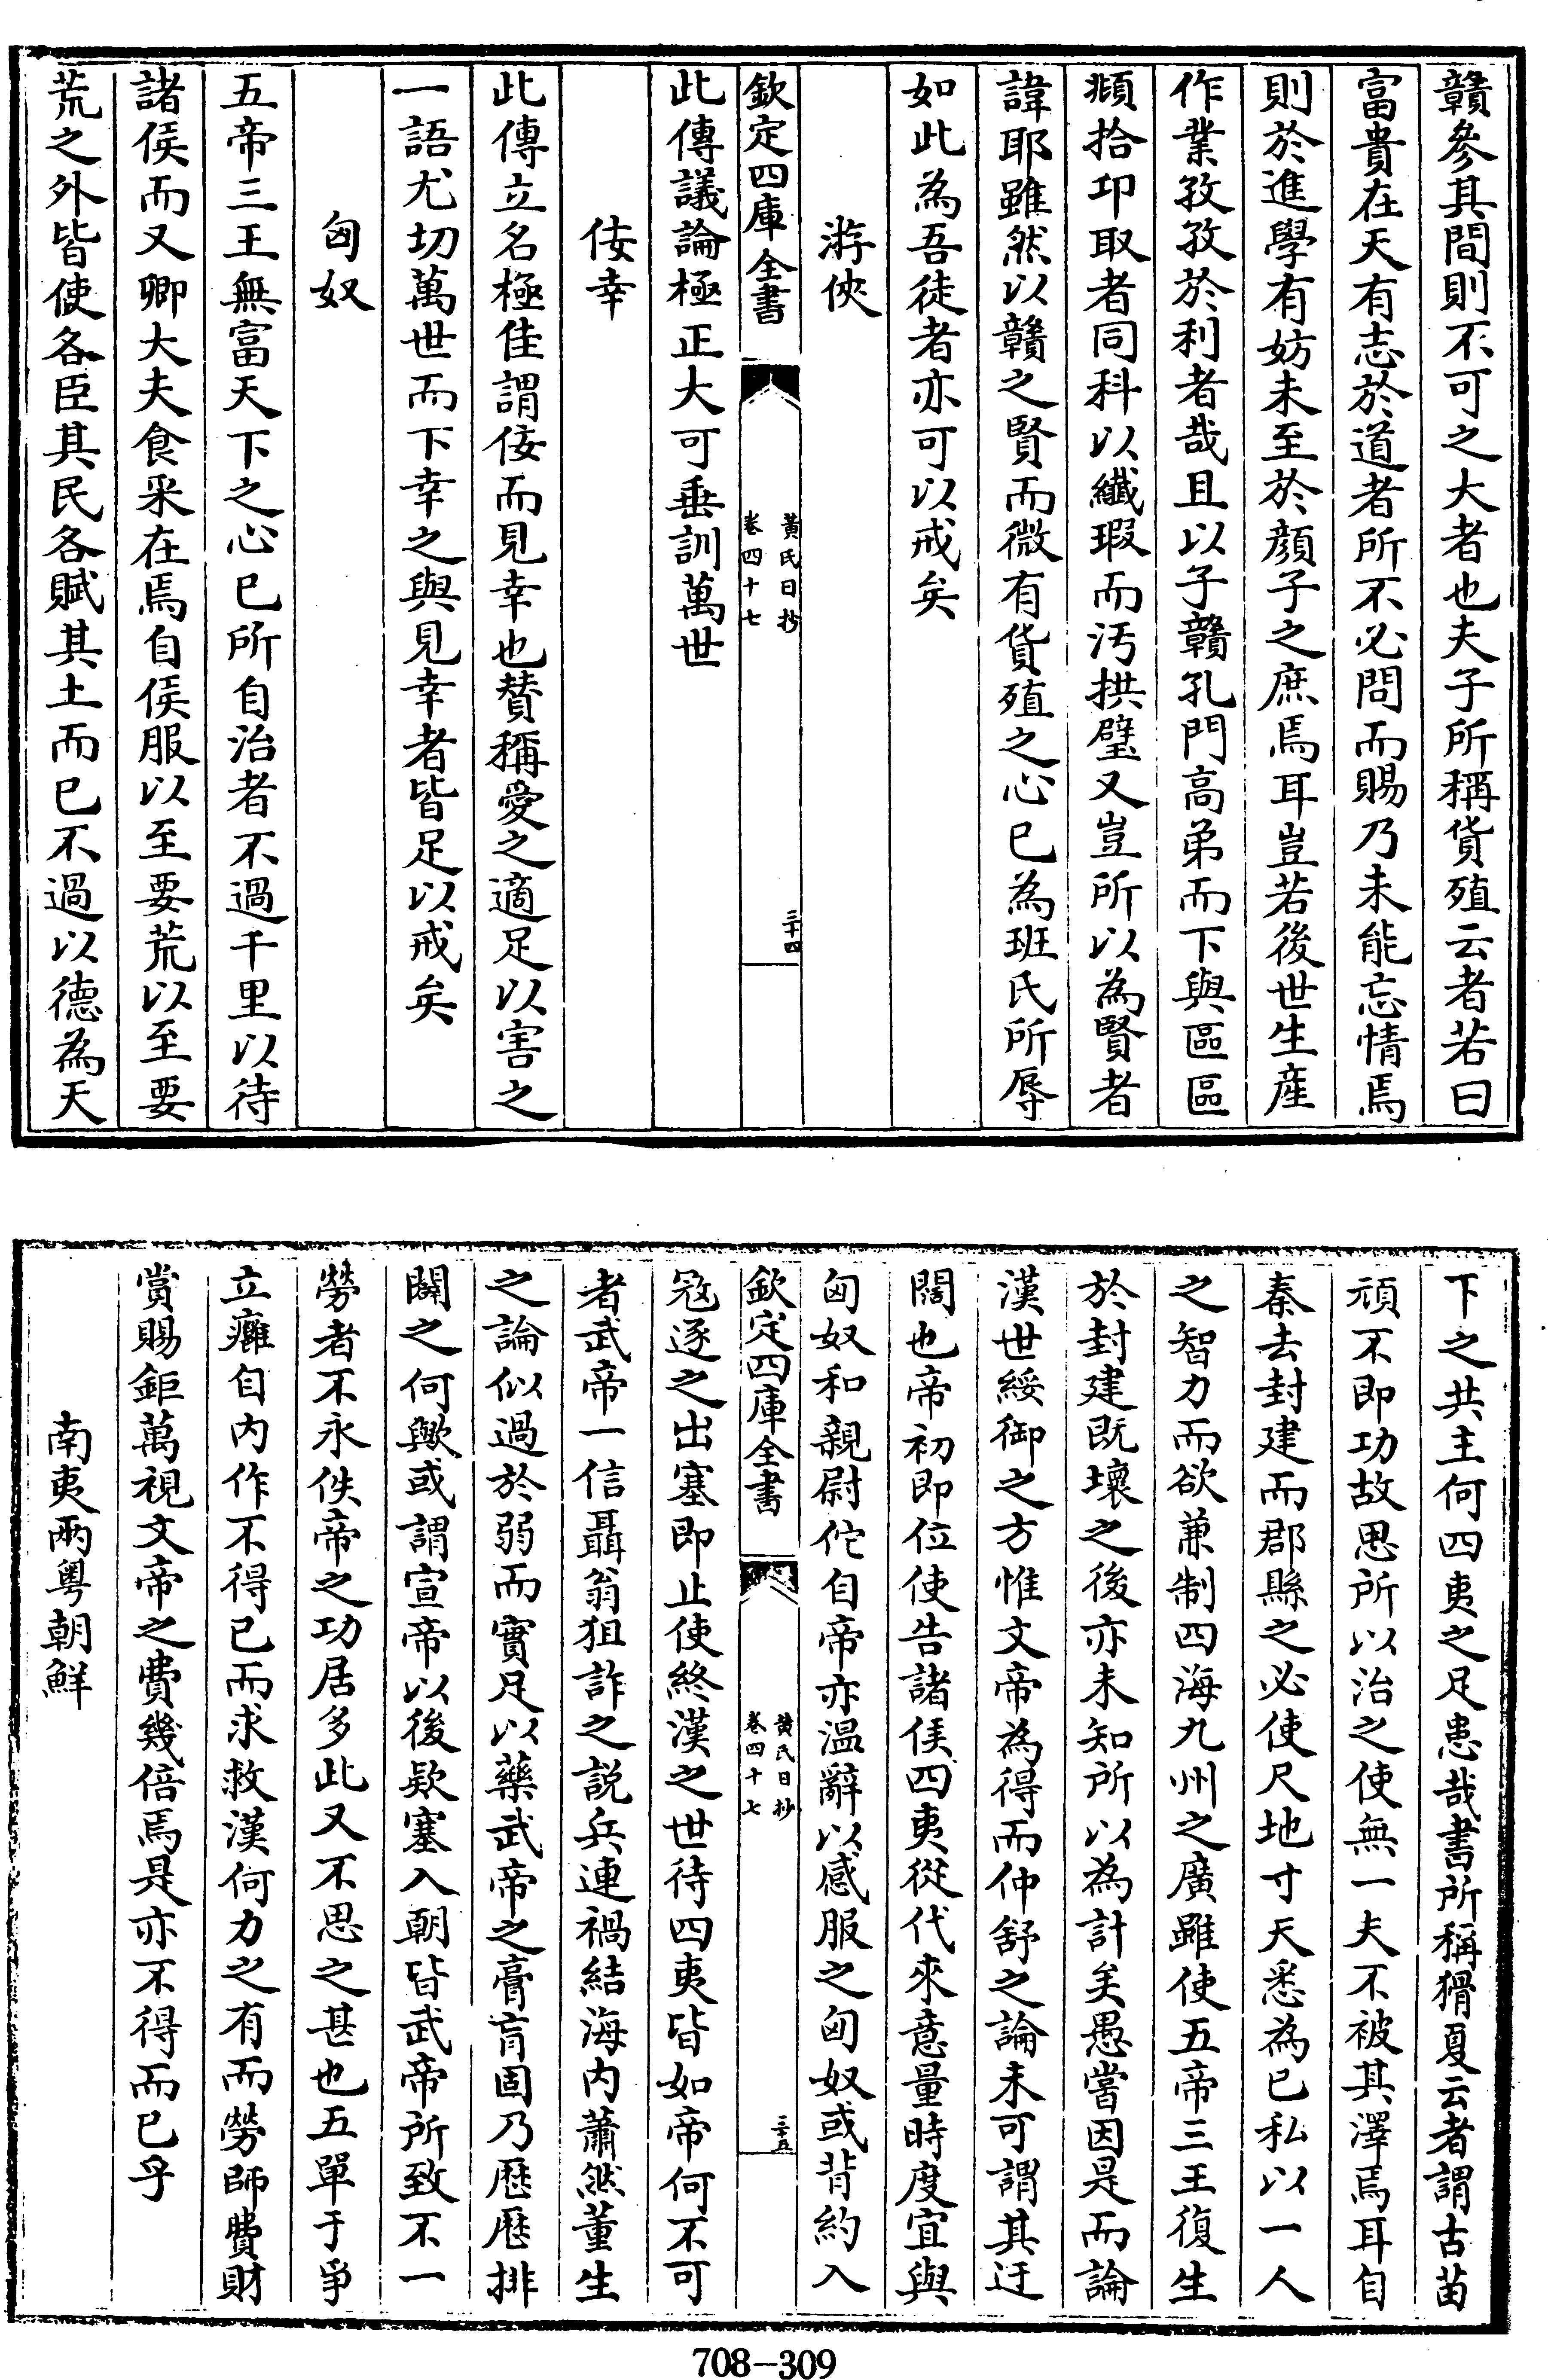 贛參其間則不可之大者也夫子所稱貨殖云者若曰
富貴在天有志於道者所不必問而賜乃未能忘情焉
則於進學有妨未至於顏子之庶焉耳豈若後世生産
作業孜孜於利者哉且以子贛孔門高弟而下與區區
頫拾卬取者同科以纎瑕而汚拱璧又豈所以為賢者
諱耶雖然以贛之賢而微有貨殖之心已為班氏所辱
如此為吾徒者亦可以戒矣
游俠
欽定四庫全書
黃氏日抄
卷四十七
三十四
此傳議論極正大可垂訓萬世
佞幸
此傳立名極佳謂佞而見幸也賛稱愛之適足以害之
一語尤切萬世而下幸之與見幸者皆足以戒矣
匈奴
五帝三王無富天下之心已所自治者不過千里以待
諸侯而又卿大夫食采在焉自侯服以至要荒以至要
荒之外皆使各臣其民各賦其土而已不過以德為天
下之共主何四夷之足患哉書所稱猾夏云者謂古苗
頑不即功故思所以治之使無一夫不被其澤焉耳自
秦去封建而郡縣之必使尺地寸天悉為已私以一人
之智力而欲兼制四海九州之廣雖使五帝三王復生
於封建既壞之後亦未知所以為計矣愚嘗因是而論
漢世綏御之方惟文帝為得而仲舒之論未可謂其迂
闊也帝初即位使告諸侯四夷從代來意量時度宜與
匈奴和親尉佗自帝亦温辭以感服之匈奴或背約入
欽定四庫全書
黃氏日抄
卷四十七
三十五
冦逐之出塞即止使終漢之世待四夷皆如帝何不可
者武帝一信聶翁狙詐之説兵連禍結海内蕭然董生
之論似過於弱而實足以藥武帝之膏肓固乃歴歴排
闢之何歟或謂宣帝以後欵塞入朝皆武帝所致不一
勞者不永佚帝之功居多此又不思之甚也五單于爭
立癰自内作不得已而求救漢何力之有而勞師費財
賞賜鉅萬視文帝之費幾倍焉是亦不得而已乎
南夷兩粤朝鮮
708-309